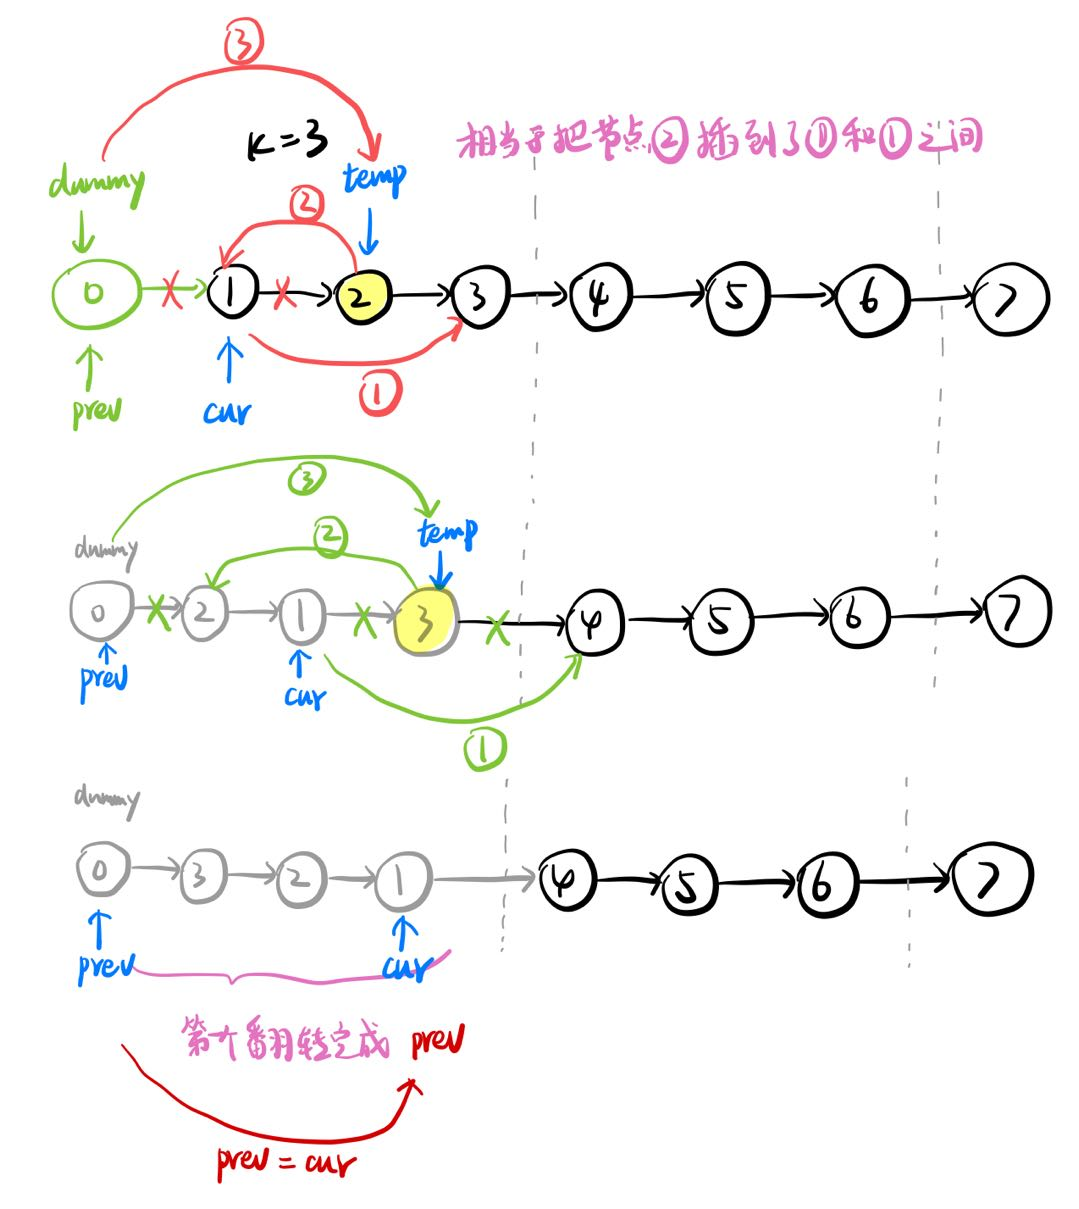 ③
K=3
相当于把节点②插到了⓪和①之间
dummy
temp
②
0 1 2 3 4 5 6 7
①
prev
cur
③
②
temp
dummy
0 2 1 3 4 5 6 7
prev
cur
①
dummy
0 3 2 1 4 5 6 7
prev
cur
第一个翻转完成
prev
prev = cur